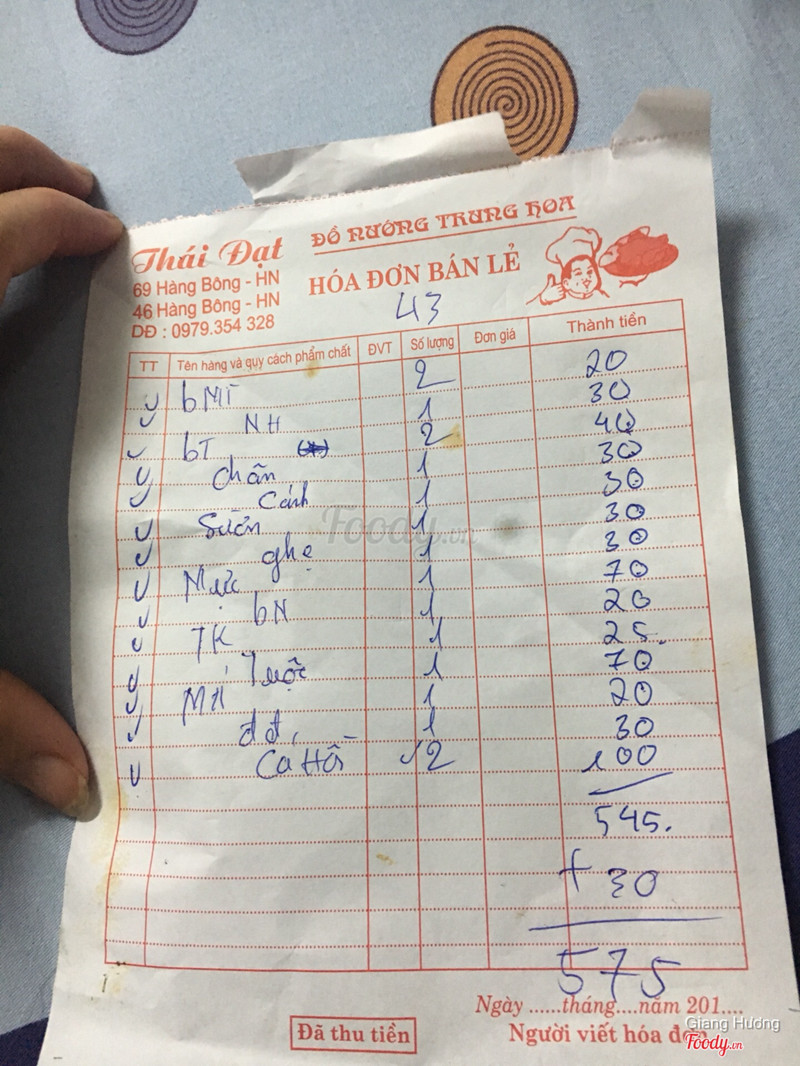 Thái Đạt ĐỒ NƯỚNG TRUNG HOA
69 Hàng Bông - HN
46 Hàng Bông - HN
DĐ : 0979.354 328
HÓA ĐƠN BÁN LẺ
43
TT Tên hàng và quy cách phẩm chất ĐVT Số lượng Đơn giá Thành tiền
bMT 2 20
NH 1 30
bT 2 40
Chân 1 30
Cánh 1 30
Sườn 1 30
ghẹ 1 30
Mực 1 70
bN 1 20
TK 1 25.
1 70
MH 1 20
đđ 1 30
Cá Hồi 2 100
545.
+ 30
575
Foody.vn
Ngày ......tháng....năm 201....
Đã thu tiền
Người viết hóa đơn
Giang Hương
Foody.vn